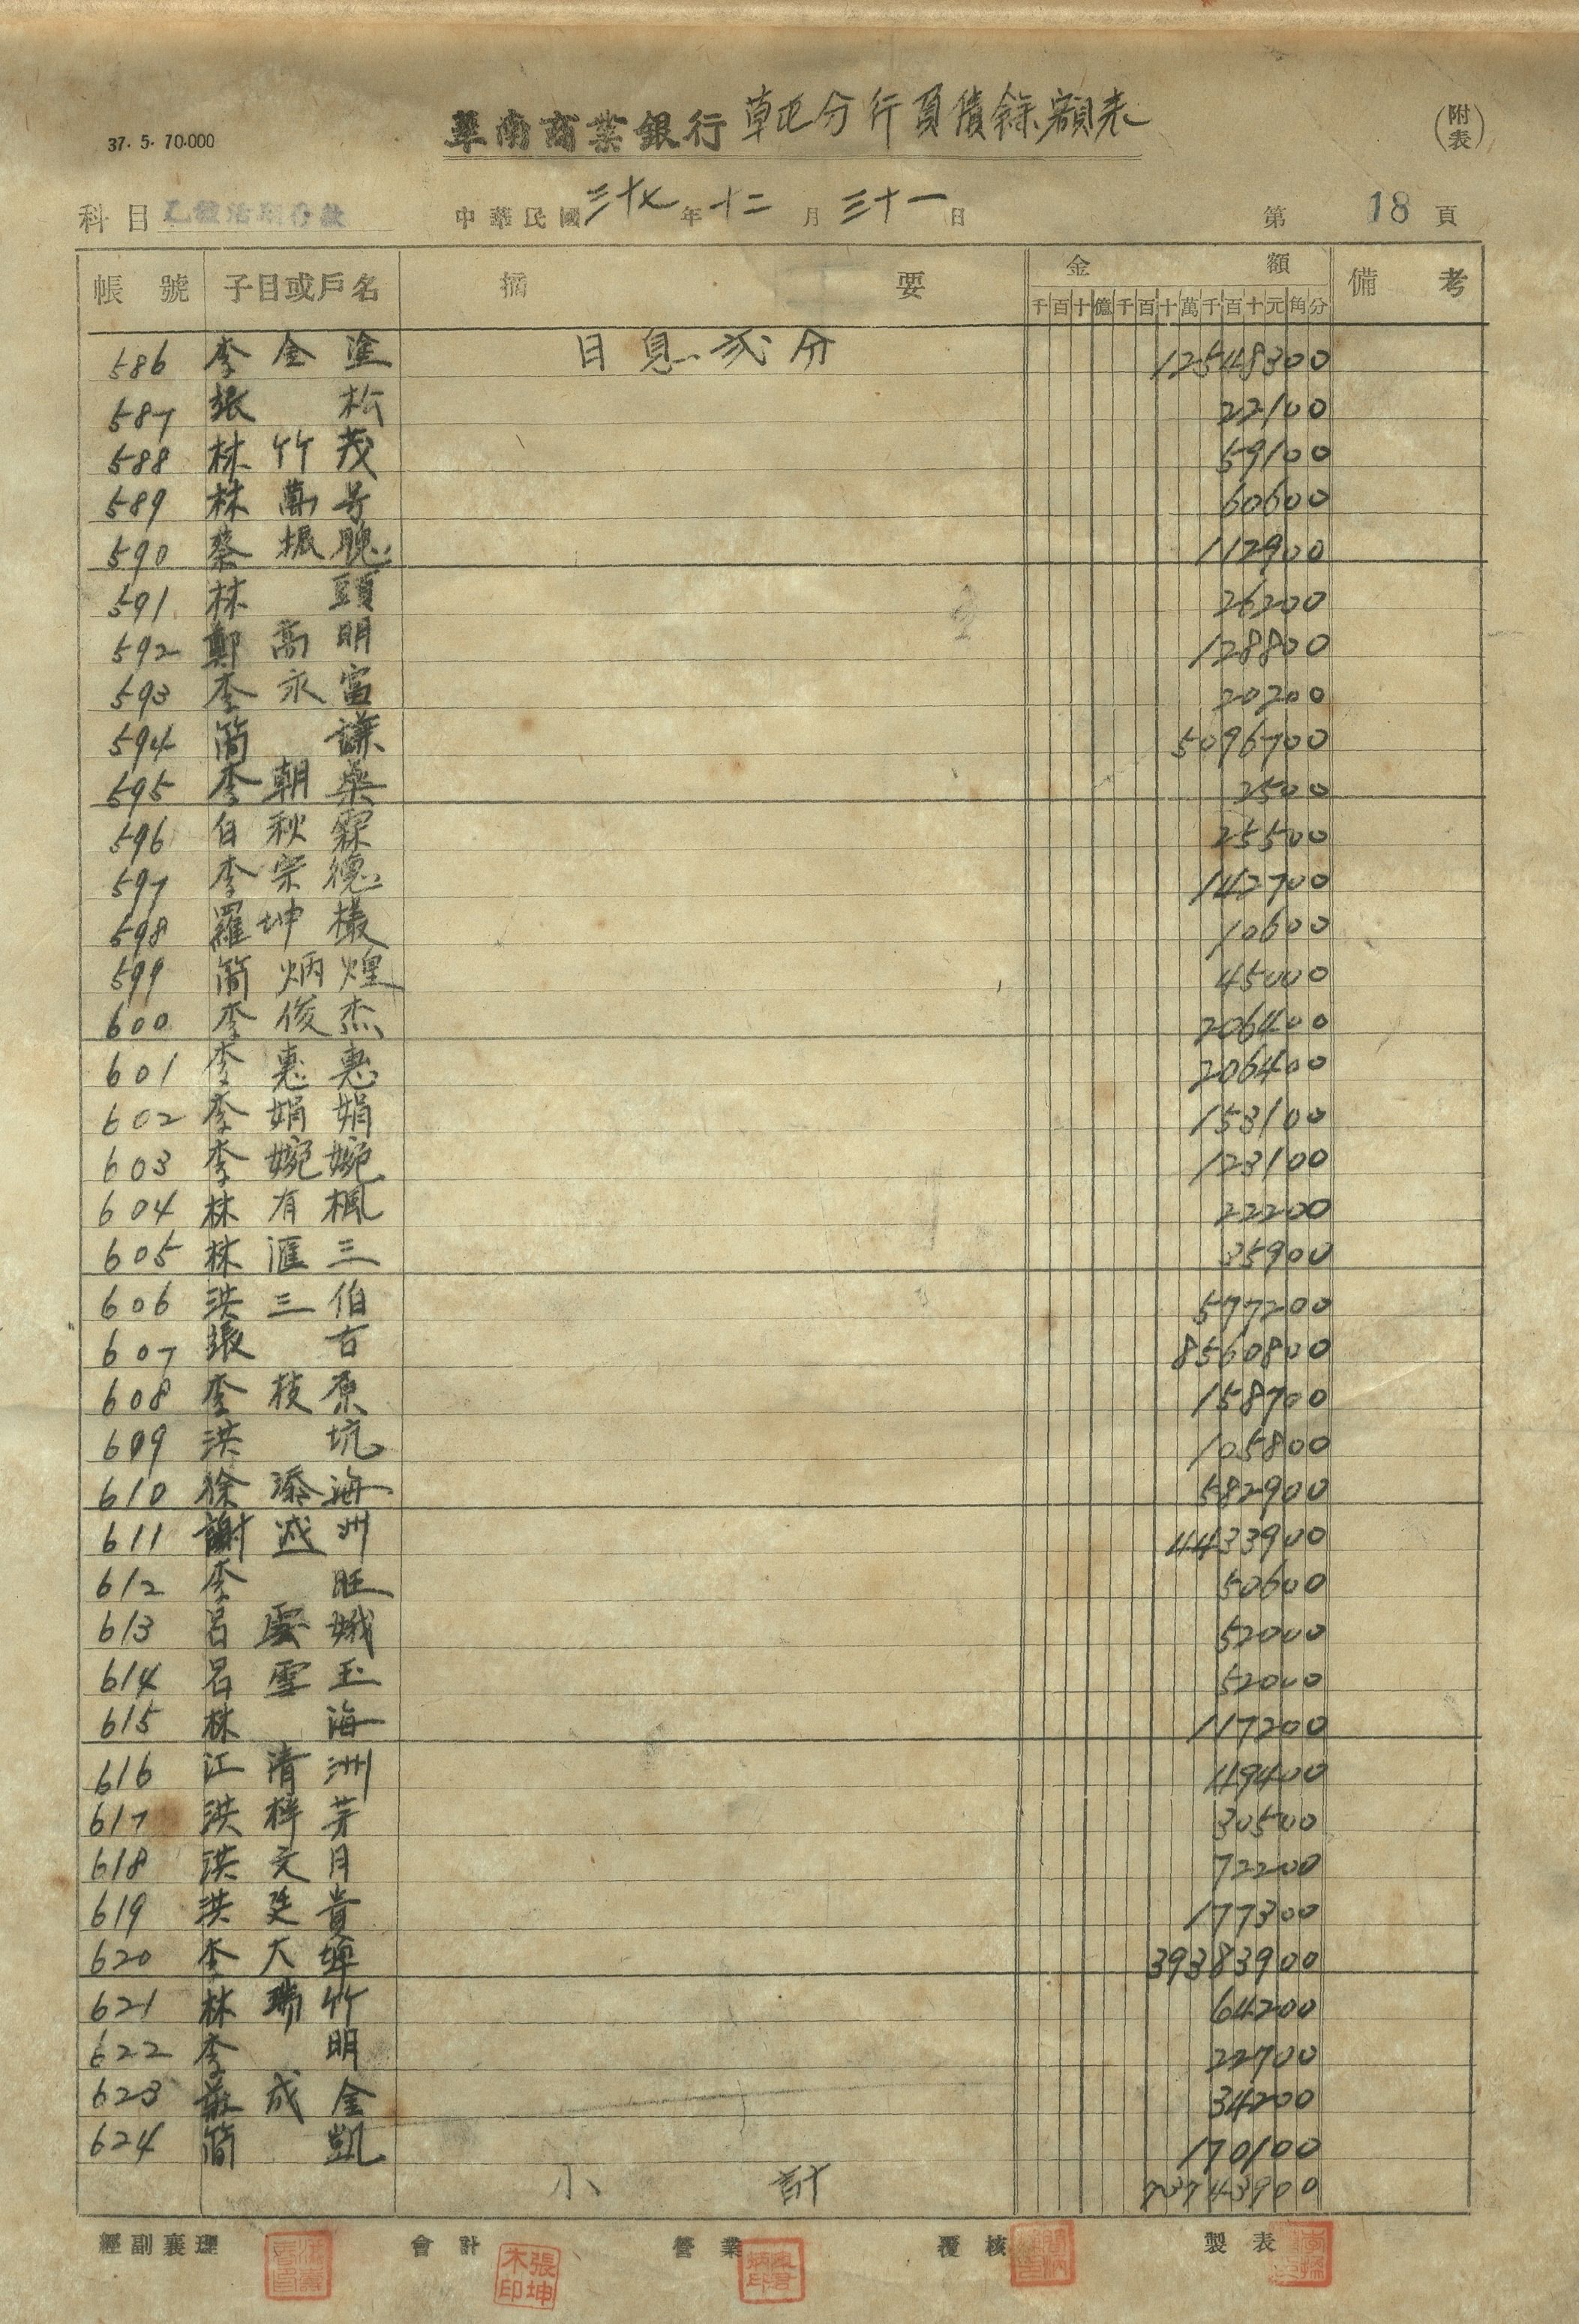 37. 5. 70.000
華南商業銀行 草屯分行負債餘額表
(附表)
科目 乙種活期存款 中華民國三十七年十二月三十一日 第 18 頁
帳號 子目或戶名 摘要 金額 備考
千百十億千百十萬千百十元角分
586 李金塗 日息貳分 12548300
587 張松 22100
588 林竹茂 59100
589 林萬号 60600
590 蔡振聰 112900
591 林頭 26200
592 鄭高明 128800
593 李永富 20200
594 簡謙 5096700
595 李朝榮 2500
596 白秋霖 25500
597 李宗德 142700
598 羅坤 10600
599 簡炳煌 45000
600 李俊杰 206400
601 李惠惠 206400
602 李娟娟 153100
603 李婉婉 123100
604 林有楓 22200
605 林滙三 35900
606 洪三伯 577200
607 張吉 8560800
608 李枝原 158700
609 洪坑 105800
610 徐添海 582900
611 謝洲 4433900
612 李旺 50600
613 呂雲娥 52000
614 呂雪玉 52000
615 林海 117200
616 江清洲 119400
617 洪芽 30500
618 洪元月 72200
619 洪廷貴 177300
620 李大 39383900
621 林瑞竹 64200
622 李明 22700
623 嚴成金 34200
624 簡凱 170100
小計 73743900
經副襄理 會計 營業 覆核 製表
張坤木印